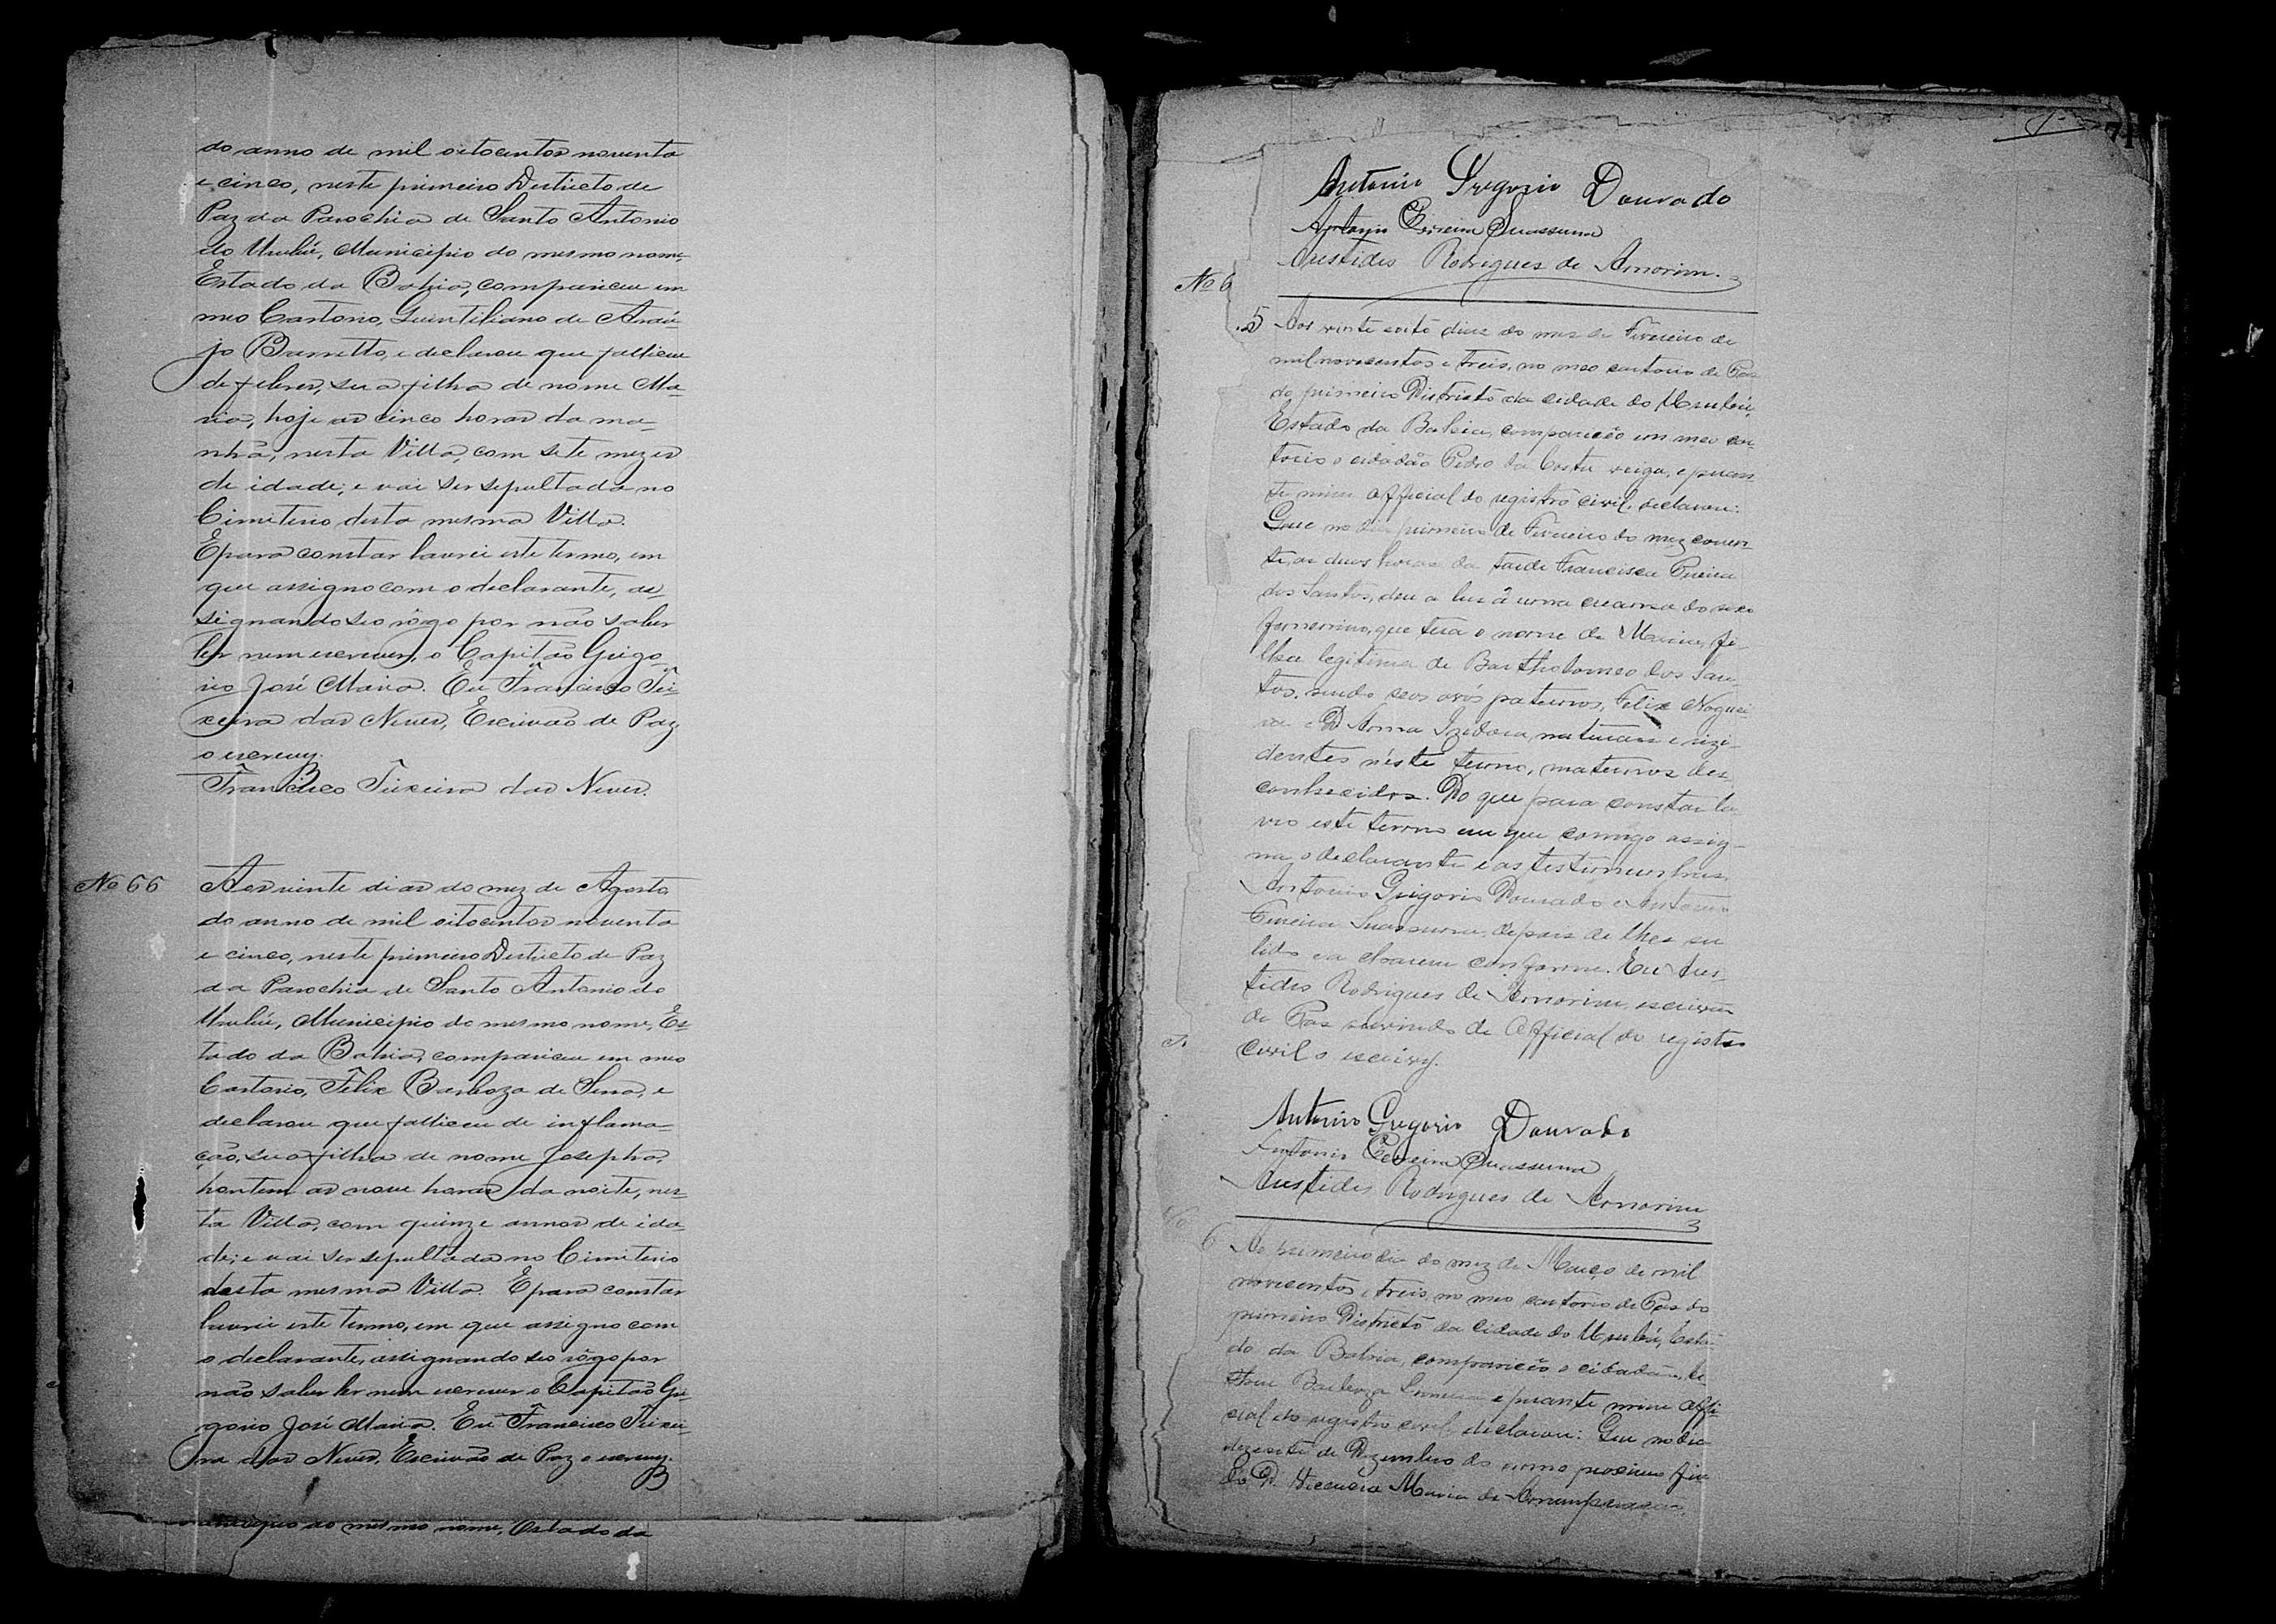 do anno de mil oitocentos noventa
e cinco, neste primeiro Destricto de
Paz da Parochia de Santo Antonio
do Urubú, Municipio do mesmo nome,
Estado da Bahia, compareceu em
meo Cartorio, Quintiliano de Araú-
jo Barretto, e declarou que falleceu
de febres, sua filha de nome Ma-
ria, hoje as cinco horas da ma-
nhã, nesta Villa, com sete mezes
de idade; e vai ser sepultada no
Cimiterio desta mesma Villa.
E para constar lavrei este termo, em
que assigno com o declarante, as-
signando seo rôgo por não saber
ler nem escrever, o Capitão Grigo-
rio José Maria. Eu Francisco Tei-
xeira das Neves, Escrivão de Paz
o escrevy.
Francisco Teixeira das Neves.
Nº 66
Aos vinte dias do mez de Agosto
do anno de mil oitocentos noventa
e cinco, neste primeiro Destricto de Paz
da Parochia de Santo Antonio do
Urubú, Municipio do mesmo nome, Es-
tado da Bahia, compareceu em meo
Cartorio, Felix Barboza de Sena, e
declarou que falleceu de inflama-
ção, sua filha de nome Josepha,
hontem as nove horas da noite, nes-
ta Villa, com quinze annos de ida-
de; e vai ser sepultada no Cimiterio
desta mesma Villa. E para constar
lavrei este termo, em que assigno com
o declarante, assignando seo rôgo por
não saber ler nem escrever o Capitão Gri-
gorio José Maria. Eu Francisco Teixei-
ra das Neves, Escrivão de Paz o escrevy.
do mesmo nome, Estado da
71
Antonio Gregorio Dourado
Antonio Ferreira Suassuna
Aristides Rodrigues de Amorim.
Nº 6
5 Aos vinte e oito dias do mez de Fevereiro de
mil novecentos e treis, no meo cartorio de Paz
do primeiro Districto da cidade do Urubú,
Estado da Bahia, compareceo em meo car-
torio o cidadão Pedro da Costa veiga, e peran-
te mim official do registro civil, declarou:
Que no dia primeiro de Fevereiro do mez corren-
te, as duas horas da tarde Francisca Pereira
dos Santos, deu a luz â uma creança do sexo
femenino, que tera o nome de Maria, fi-
lha legitima de Bartholomeo dos San-
tos, sendo seos avós paternos, Felix Noguei-
ra e D. Anna Izidora, naturaes e rizi-
dentes nêste termo, maternos des-
conhecidos. Do que para constar la-
vro este termo em que comigo assig-
na, o declarante e as testemunhas
Antonio Grigorio Dourado e Antonio
Ferreira Suassuna, depois de lhes ser
lido e a charem conforme. Eu Aris-
tides Rodrigues de Amorim, escrivão
de Paz servindo de Official do registro
civil o escrevy.
Antonio Gregorio Dourado
Antonio Ferreira Suassuna
Aristides Rodrigues de Amorim
6 Ao primeiro dia do mez de Março de mil
novecentos e treis, no meo cartorio de Paz do
primeiro Districto da Cidade do Urubú, Esta-
do da Bahia, compareceo o cidadão
Barboza e perante mim offi-
cial do registro civil, declarou: Que no dia
dezesete de Dezembro do anno proximo fin-
do D. Maria da